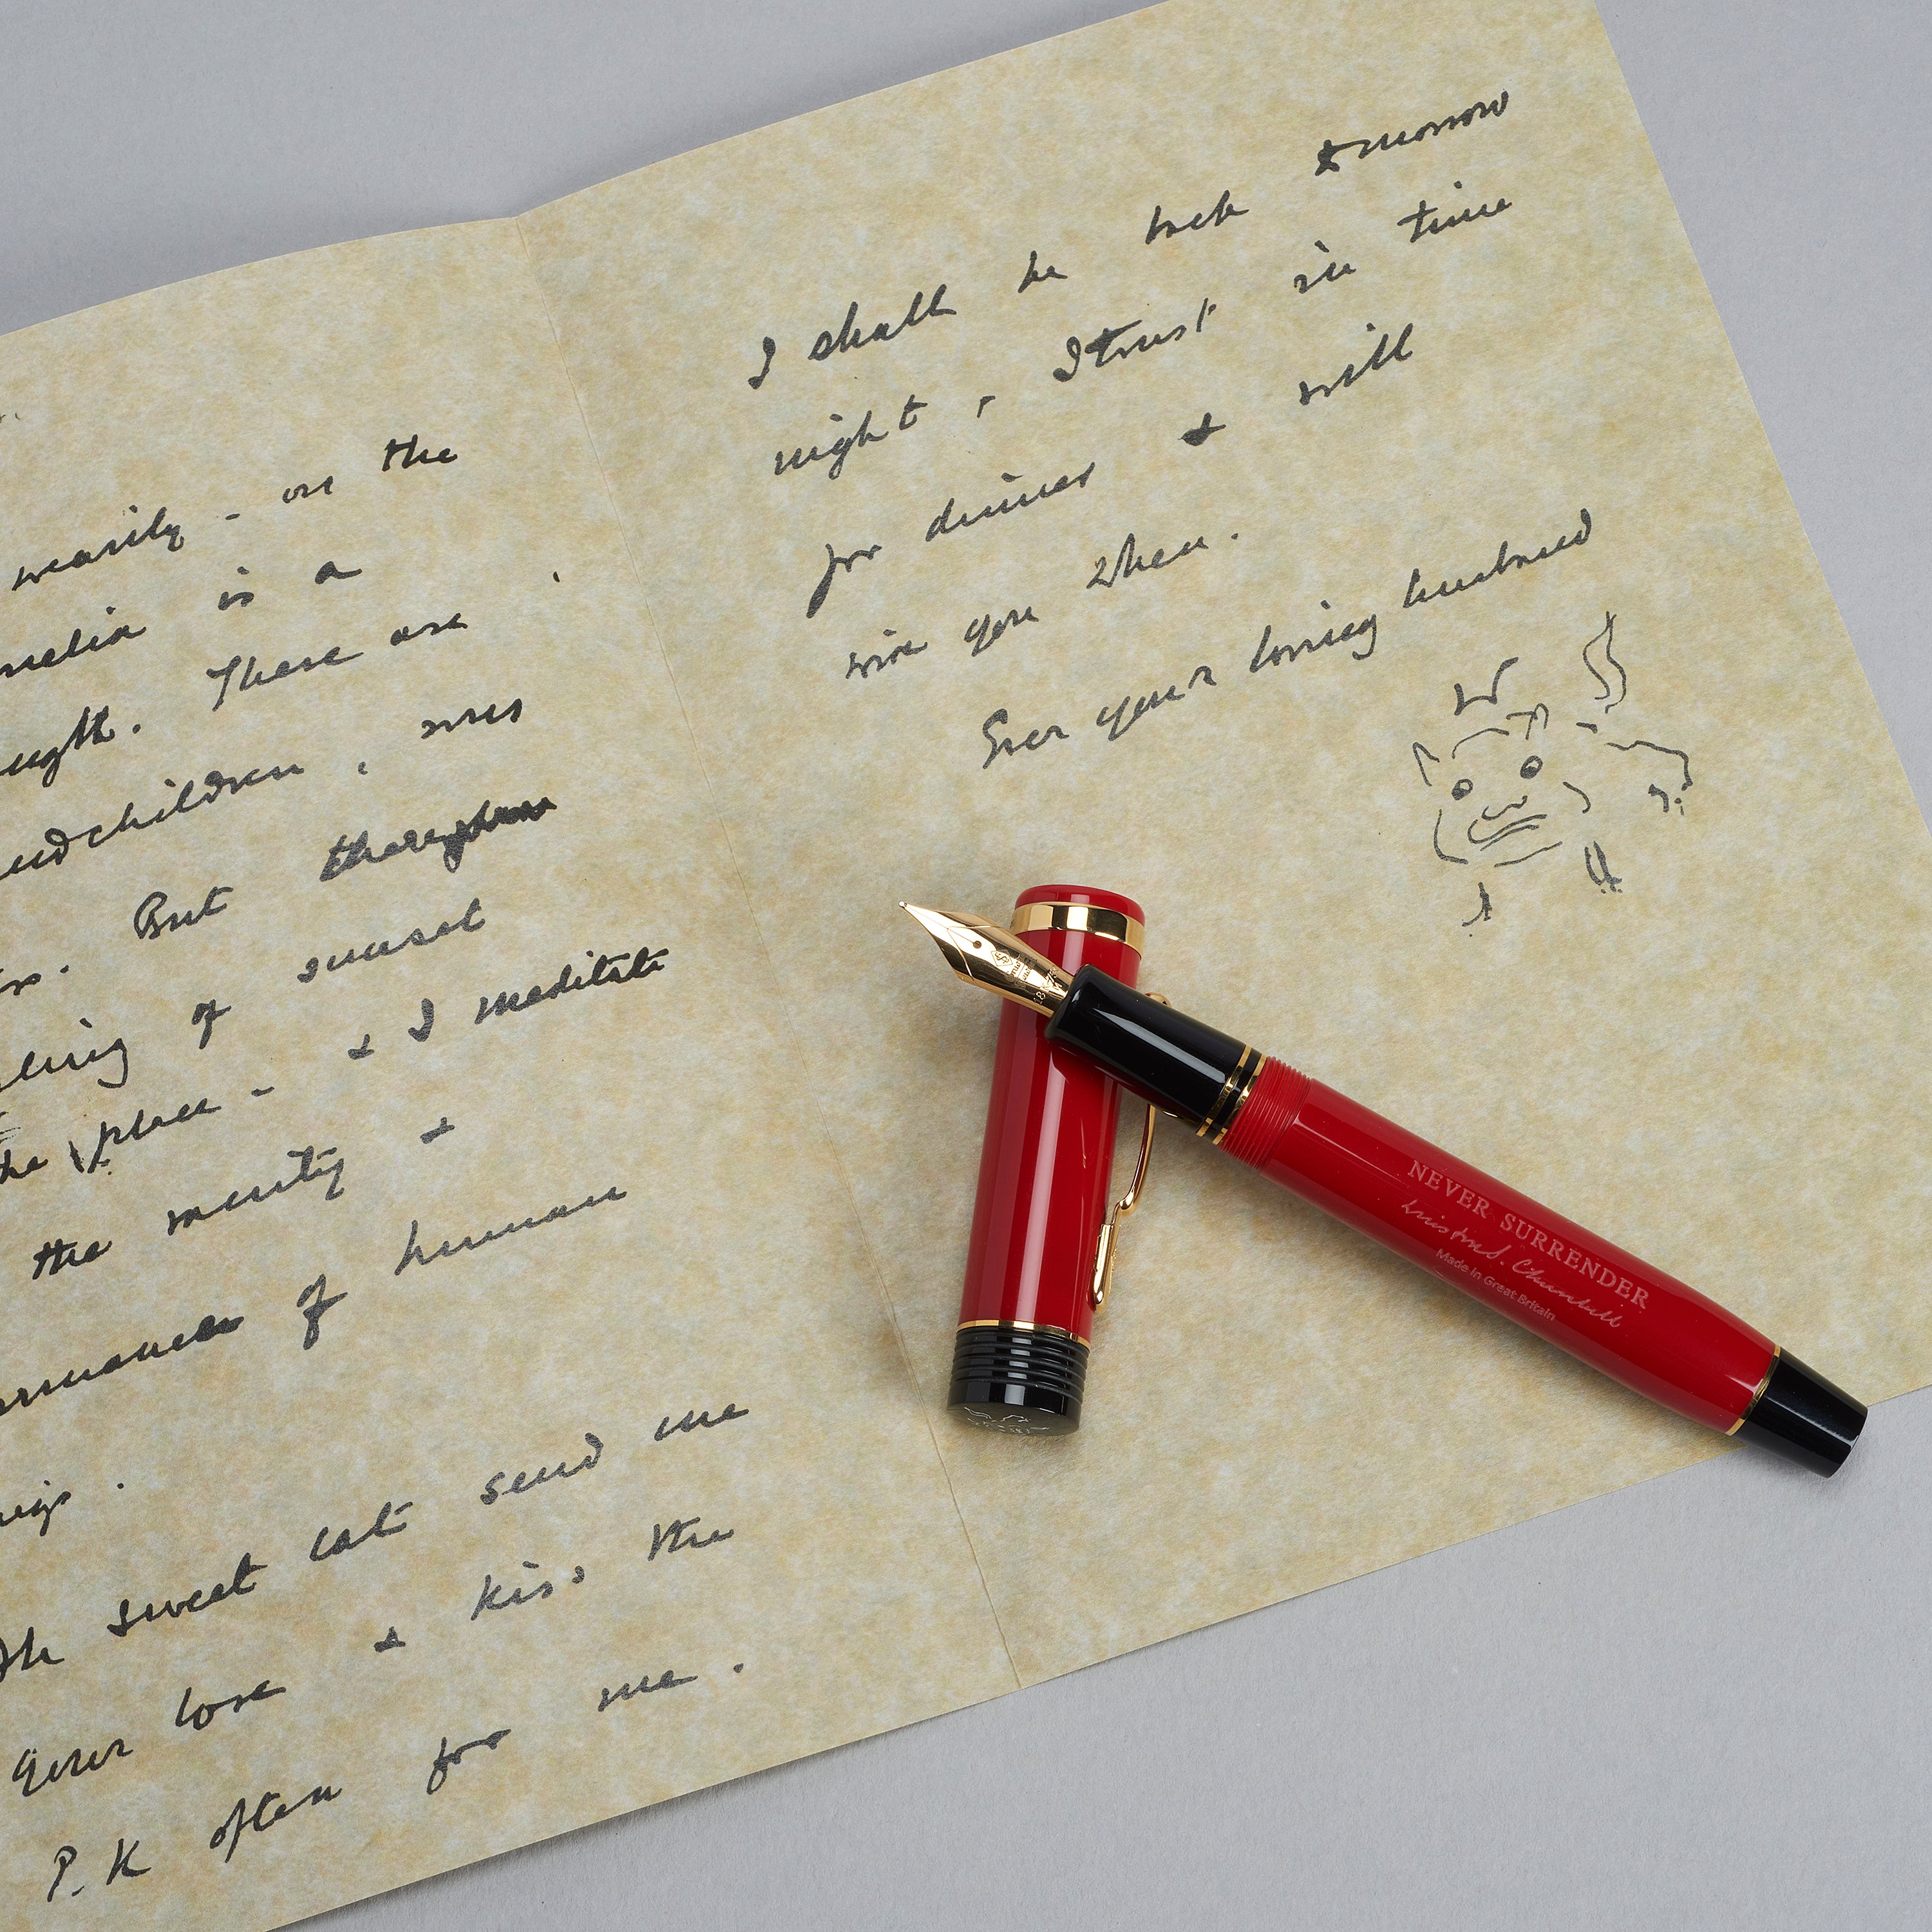 wearily - on the
is a
There are
, sons
But
of sunset
place - & I meditate
the vanity &
of human
sweet cat send me
your love & kiss the
P.K often for me.
I shall be back tomorrow
night, I trust in time
for dinner & will
wire you when.
Ever your loving husband
W
NEVER SURRENDER
Winston S. Churchill
Made in Great Britain
18